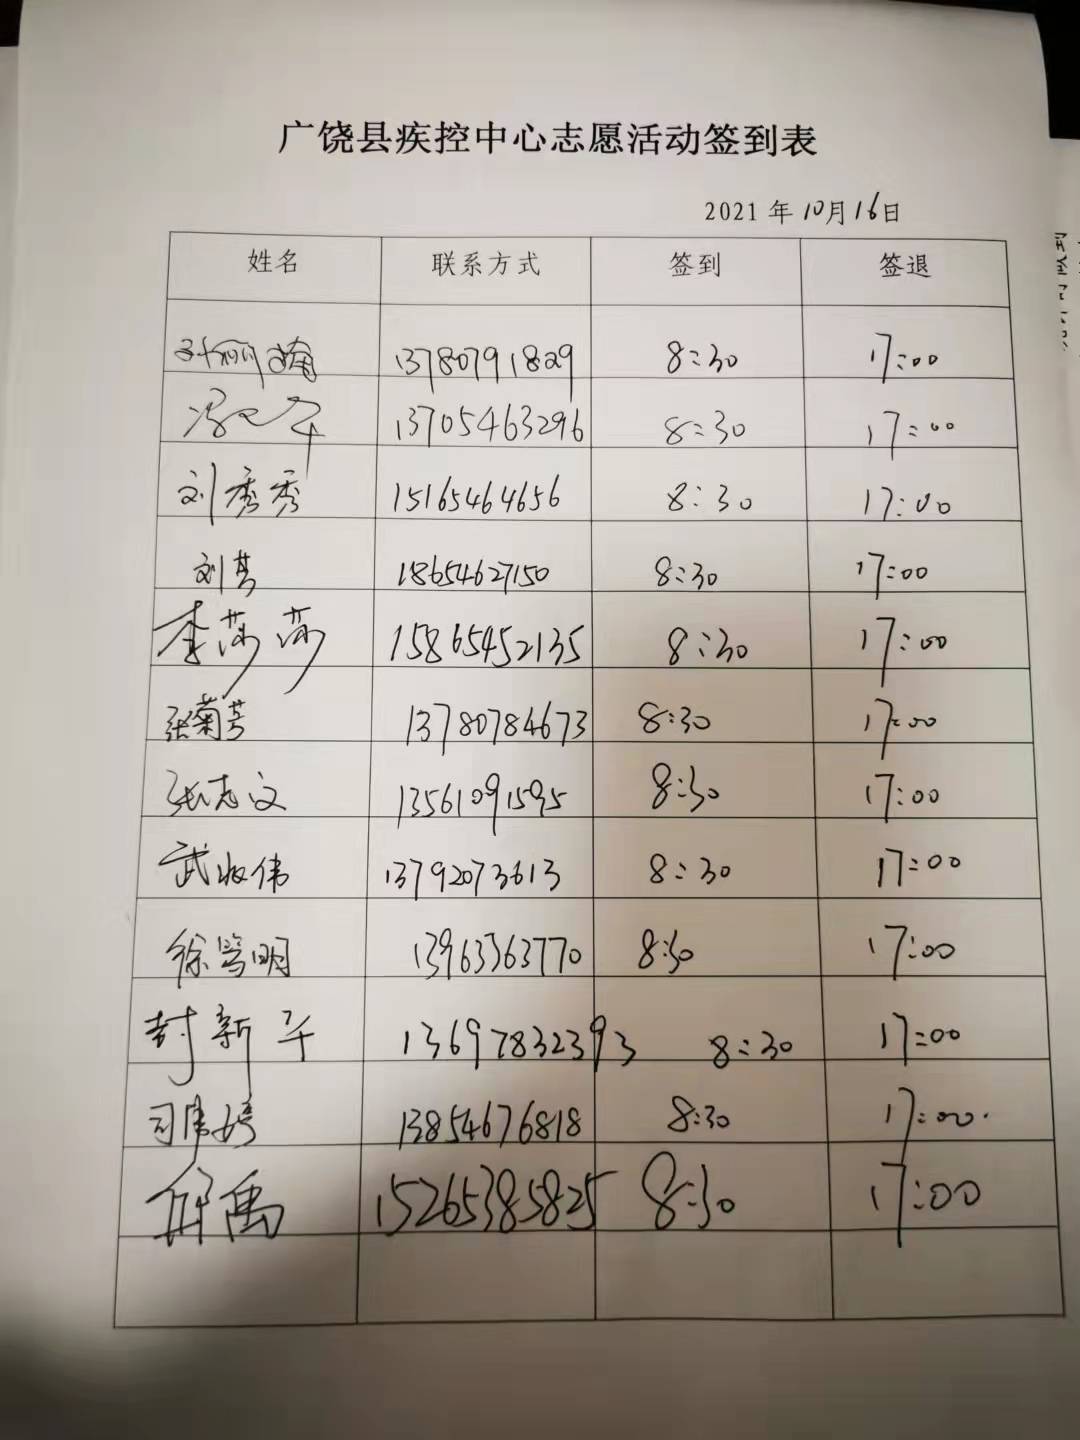 广饶县疾控中心志愿活动签到表
2021 年 10月 16日
姓名 联系方式 签到 签退
13780791829 8:30 17:00
13705463296 8:30 17:00
刘秀秀 15165464656 8:30 17:00
刘芳 18654627150 8:30 17:00
李莎莎 15865452135 8:30 17:00
张菊芳 13780784673 8:30 17:00
张志文 13561091595 8:30 17:00
武收伟 13792073613 8:30 17:00
徐笃明 13963363770 8:30 17:00
封新军 13697832393 8:30 17:00
司伟婷 13854676818 8:30 17:00
薛禹 15265385825 8:30 17:00